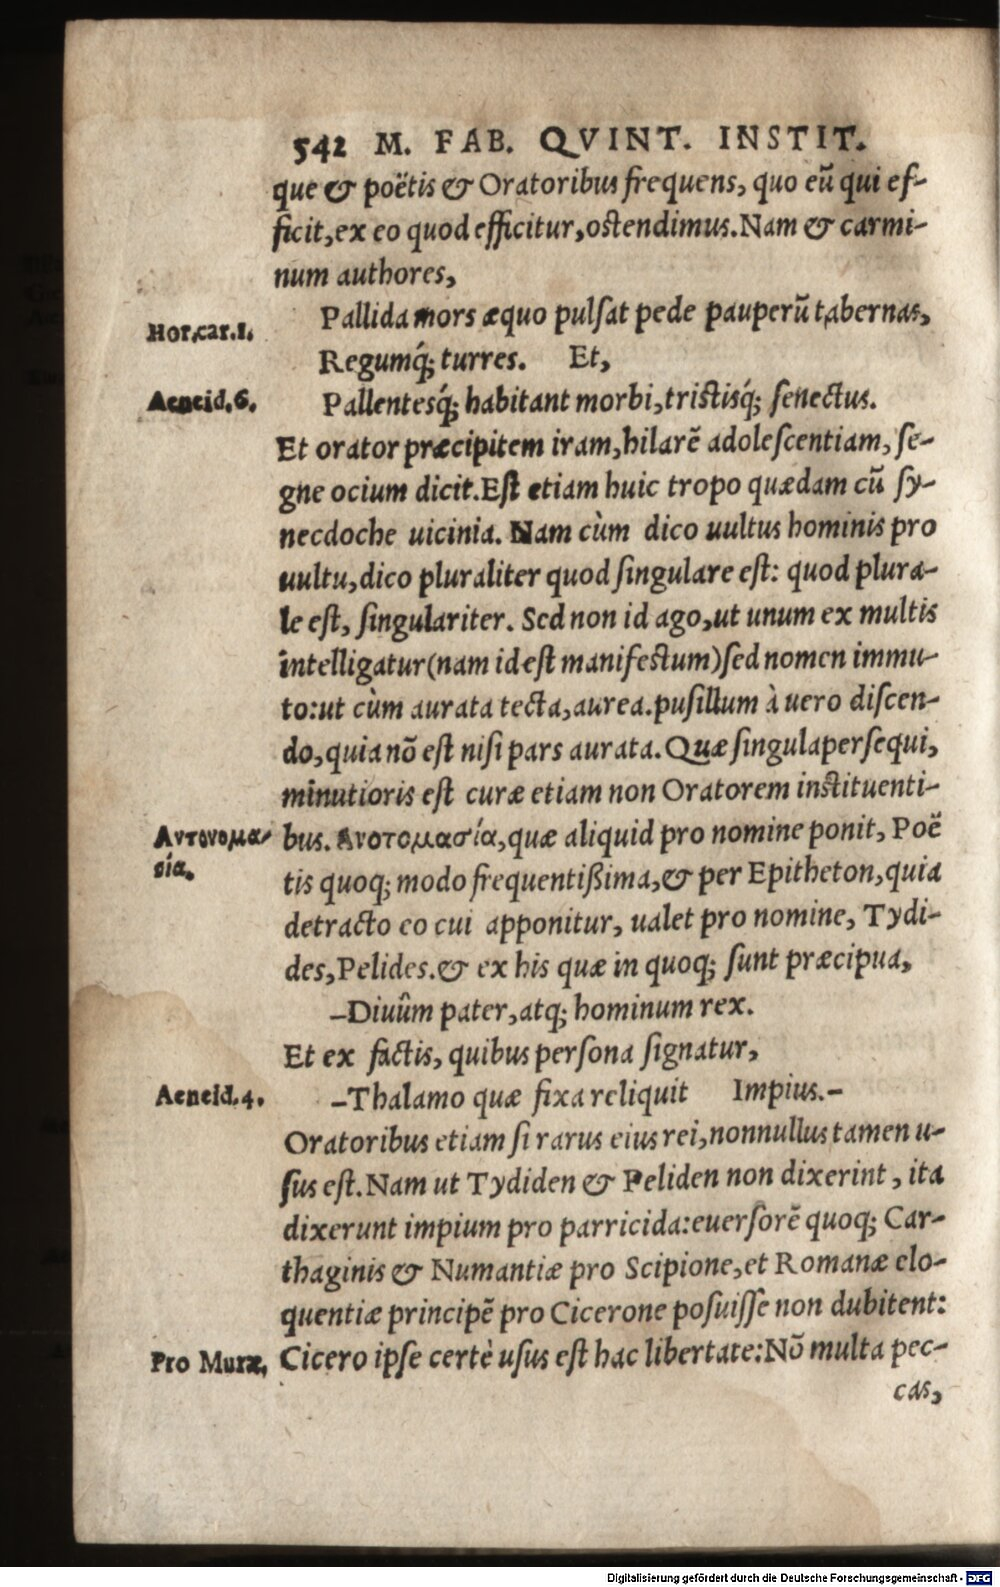 542 M. FAB. QVINT. INSTIT.
que & poëtis & Oratoribus frequens, quo eũ qui ef-
ficit, ex eo quod efficitur, ostendimus. Nam & carmi-
num authores,
Hor. car. 1.
Pallida mors æquo pulsat pede pauperũ tabernas,
Regumq́; turres. Et,
Aeneid. 6.
Pallentesq́; habitant morbi, tristisq́; senectus.
Et orator præcipitem iram, hilarẽ adolescentiam, se-
gne ocium dicit. Est etiam huic tropo quædam cũ sy-
necdoche uicinia. Nam cùm dico uultus hominis pro
uultu, dico pluraliter quod singulare est: quod plura-
le est, singulariter. Sed non id ago, ut unum ex multis
intelligatur (nam id est manifectum) sed nomen immu-
to: ut cùm aurata tecta, aurea. pusillum à uero discen-
do, quia nõ est nisi pars aurata. Quæ singula persequi,
minutioris est curæ etiam non Oratorem instituenti-
Αντονομα-
σία.
bus. Ανοτομασία, quæ aliquid pro nomine ponit, Poë
tis quoq; modo frequentißima, & per Epitheton, quia
detracto eo cui apponitur, ualet pro nomine, Tydi-
des, Pelides. & ex his quæ in quoq; sunt præcipua,
–Diuûm pater, atq; hominum rex.
Et ex factis, quibus persona signatur,
Aeneid. 4.
–Thalamo quæ fixa reliquit Impius.–
Oratoribus etiam si rarus eius rei, nonnullus tamen u-
sus est. Nam ut Tydiden & Peliden non dixerint, ita
dixerunt impium pro parricida: euersorẽ quoq; Car-
thaginis & Numantiæ pro Scipione, et Romanæ elo-
quentiæ principẽ pro Cicerone posuisse non dubitent:
Pro Muræ.
Cicero ipse certè usus est hac libertate: Nõ multa pec-
cas,
Digitalisierung gefördert durch die Deutsche Forschungsgemeinschaft - DFG